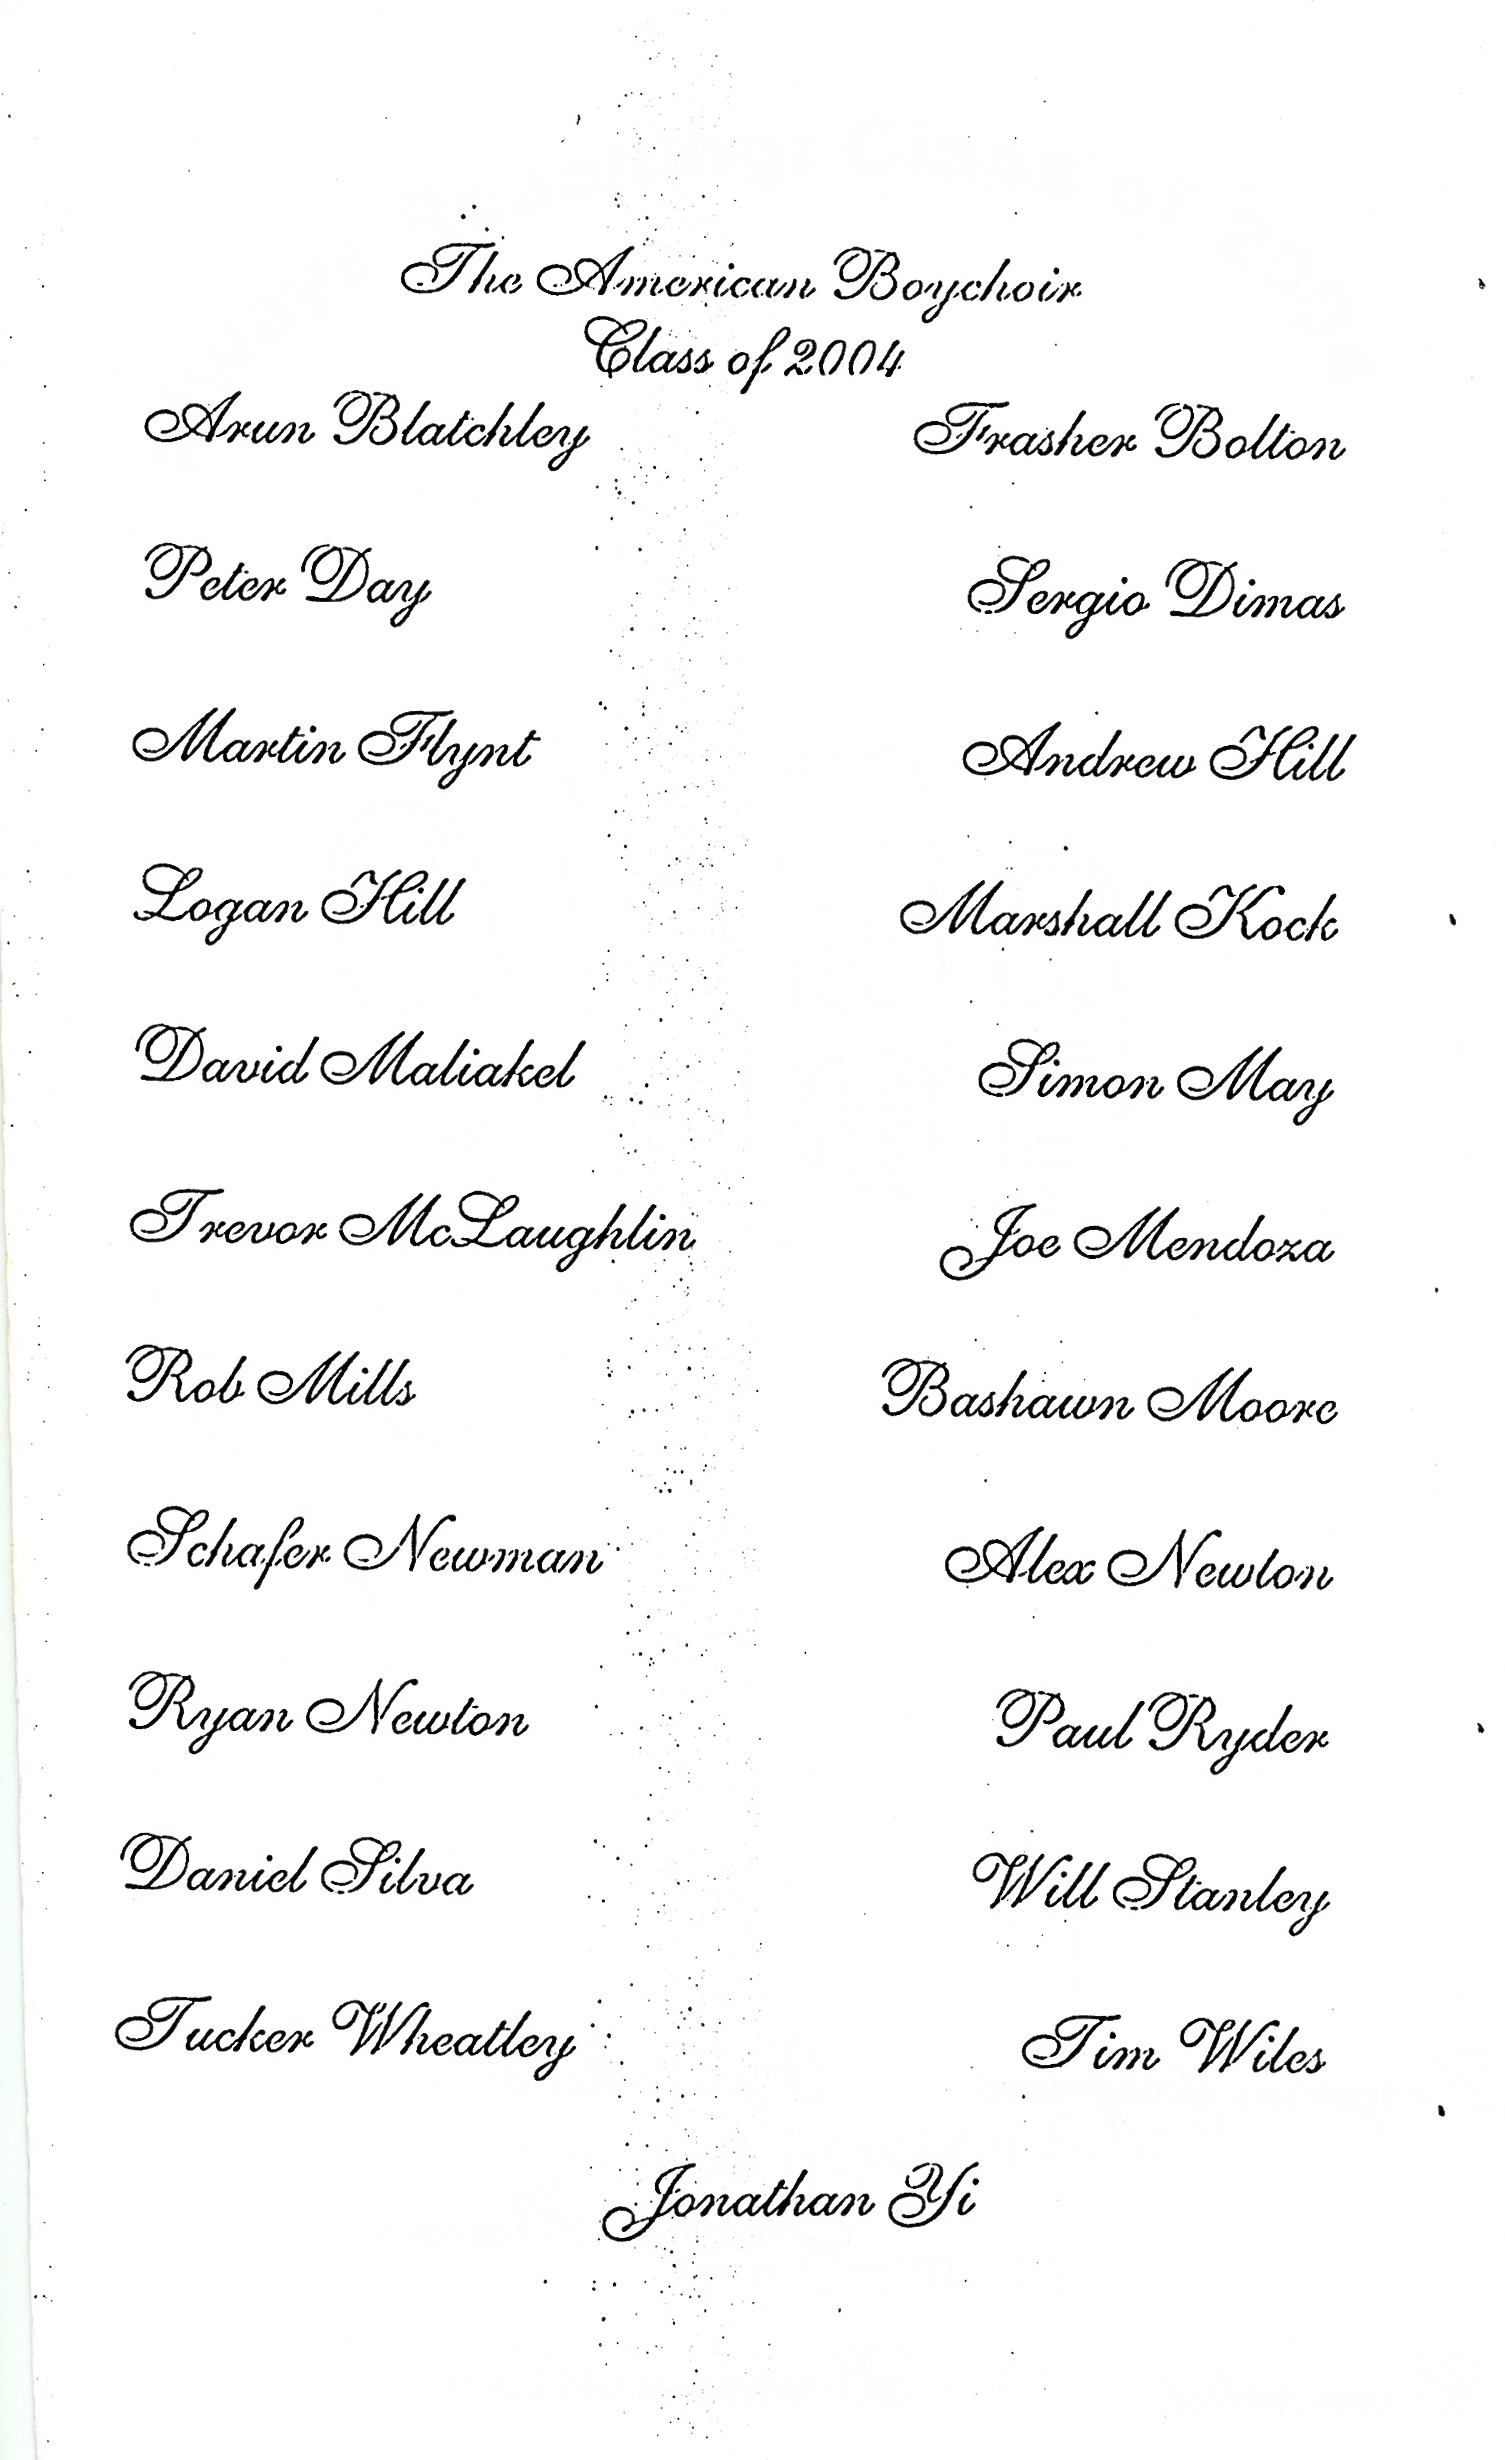 The American Boychoir
Class of 2004
Arun Blatchley Frasher Bolton
Peter Day Sergio Dimas
Martin Flynt Andrew Hill
Logan Hill Marshall Kock
David Maliakel Simon May
Trevor McLaughlin Joe Mendoza
Rob Mills Bashawn Moore
Schafer Newman Alex Newton
Ryan Newton Paul Ryder
Daniel Silva Will Stanley
Tucker Wheatley Tim Wiles
Jonathan Yi